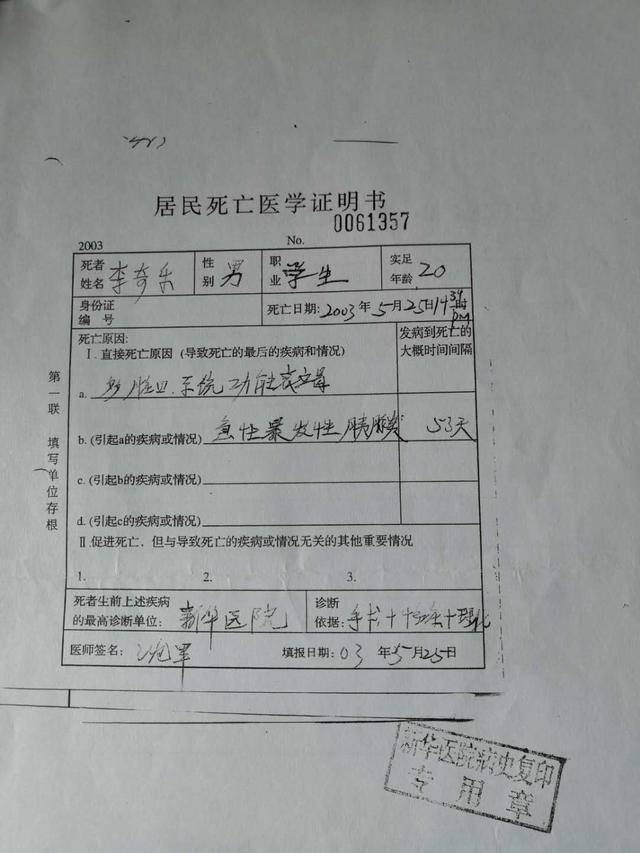 居民死亡医学证明书
0061357
2003 No.
死者姓名 李奇乐 性别 男 职业 学生 实足年龄 20
身份证编号 死亡日期: 2003 年 5 月 25 日 14 时 39 PM
死亡原因: 发病到死亡的大概时间间隔
I. 直接死亡原因 (导致死亡的最后的疾病和情况)
a. 系统功能
b. (引起a的疾病或情况) 急性暴发性胰腺炎 53天
c. (引起b的疾病或情况)
d. (引起c的疾病或情况)
II 促进死亡，但与导致死亡的疾病或情况无关的其他重要情况
1. 2. 3.
死者生前上述疾病的最高诊断单位: 新华医院 诊断依据: 手术+ +理化
医师签名: 填报日期: 03 年 5 月 25 日
第一联 填写单位存根
新华医院病史复印
专用章